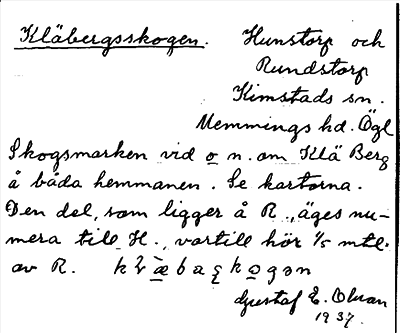 Kläbergsskogen. Hunstorp och
Rundstorp
Kimstads sn.
Memmings hd. Ögl
Skogsmarken vid o n. om Klä Berg
å båda hemmanen. Se kartorna.
Den del, som ligger å R., äges nu-
mera till H., vartill hör 1/5 mtl.
av R.
Gustaf E. Olsson
1937.